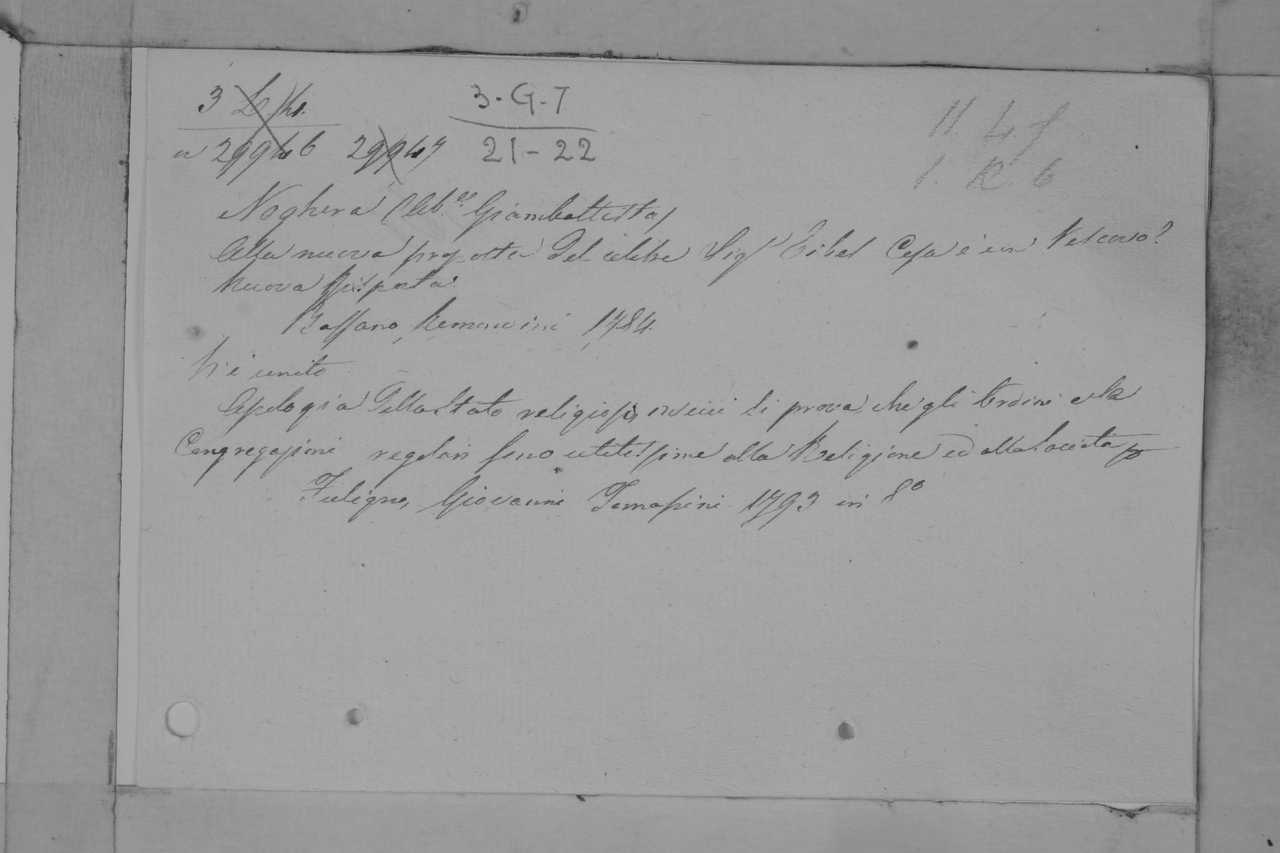 3 3-G-7 11. 4. f
29946 29947 21-22 1. R. 6
Noghera (Ab.e Giambattista)
Alla nuova proposta del celebre Sig.r Eibel Cosa è un Vescovo?
Nuova Risposta
Bassano, Remondini 1784
Vi è unito
Apologia dello Stato religioso, in cui si prova che gli Ordini e le
Congregazioni regolari sono utilissime alla Religione ed alla Società
Fuligno, Giovanni Tomassini 1793 in 8°